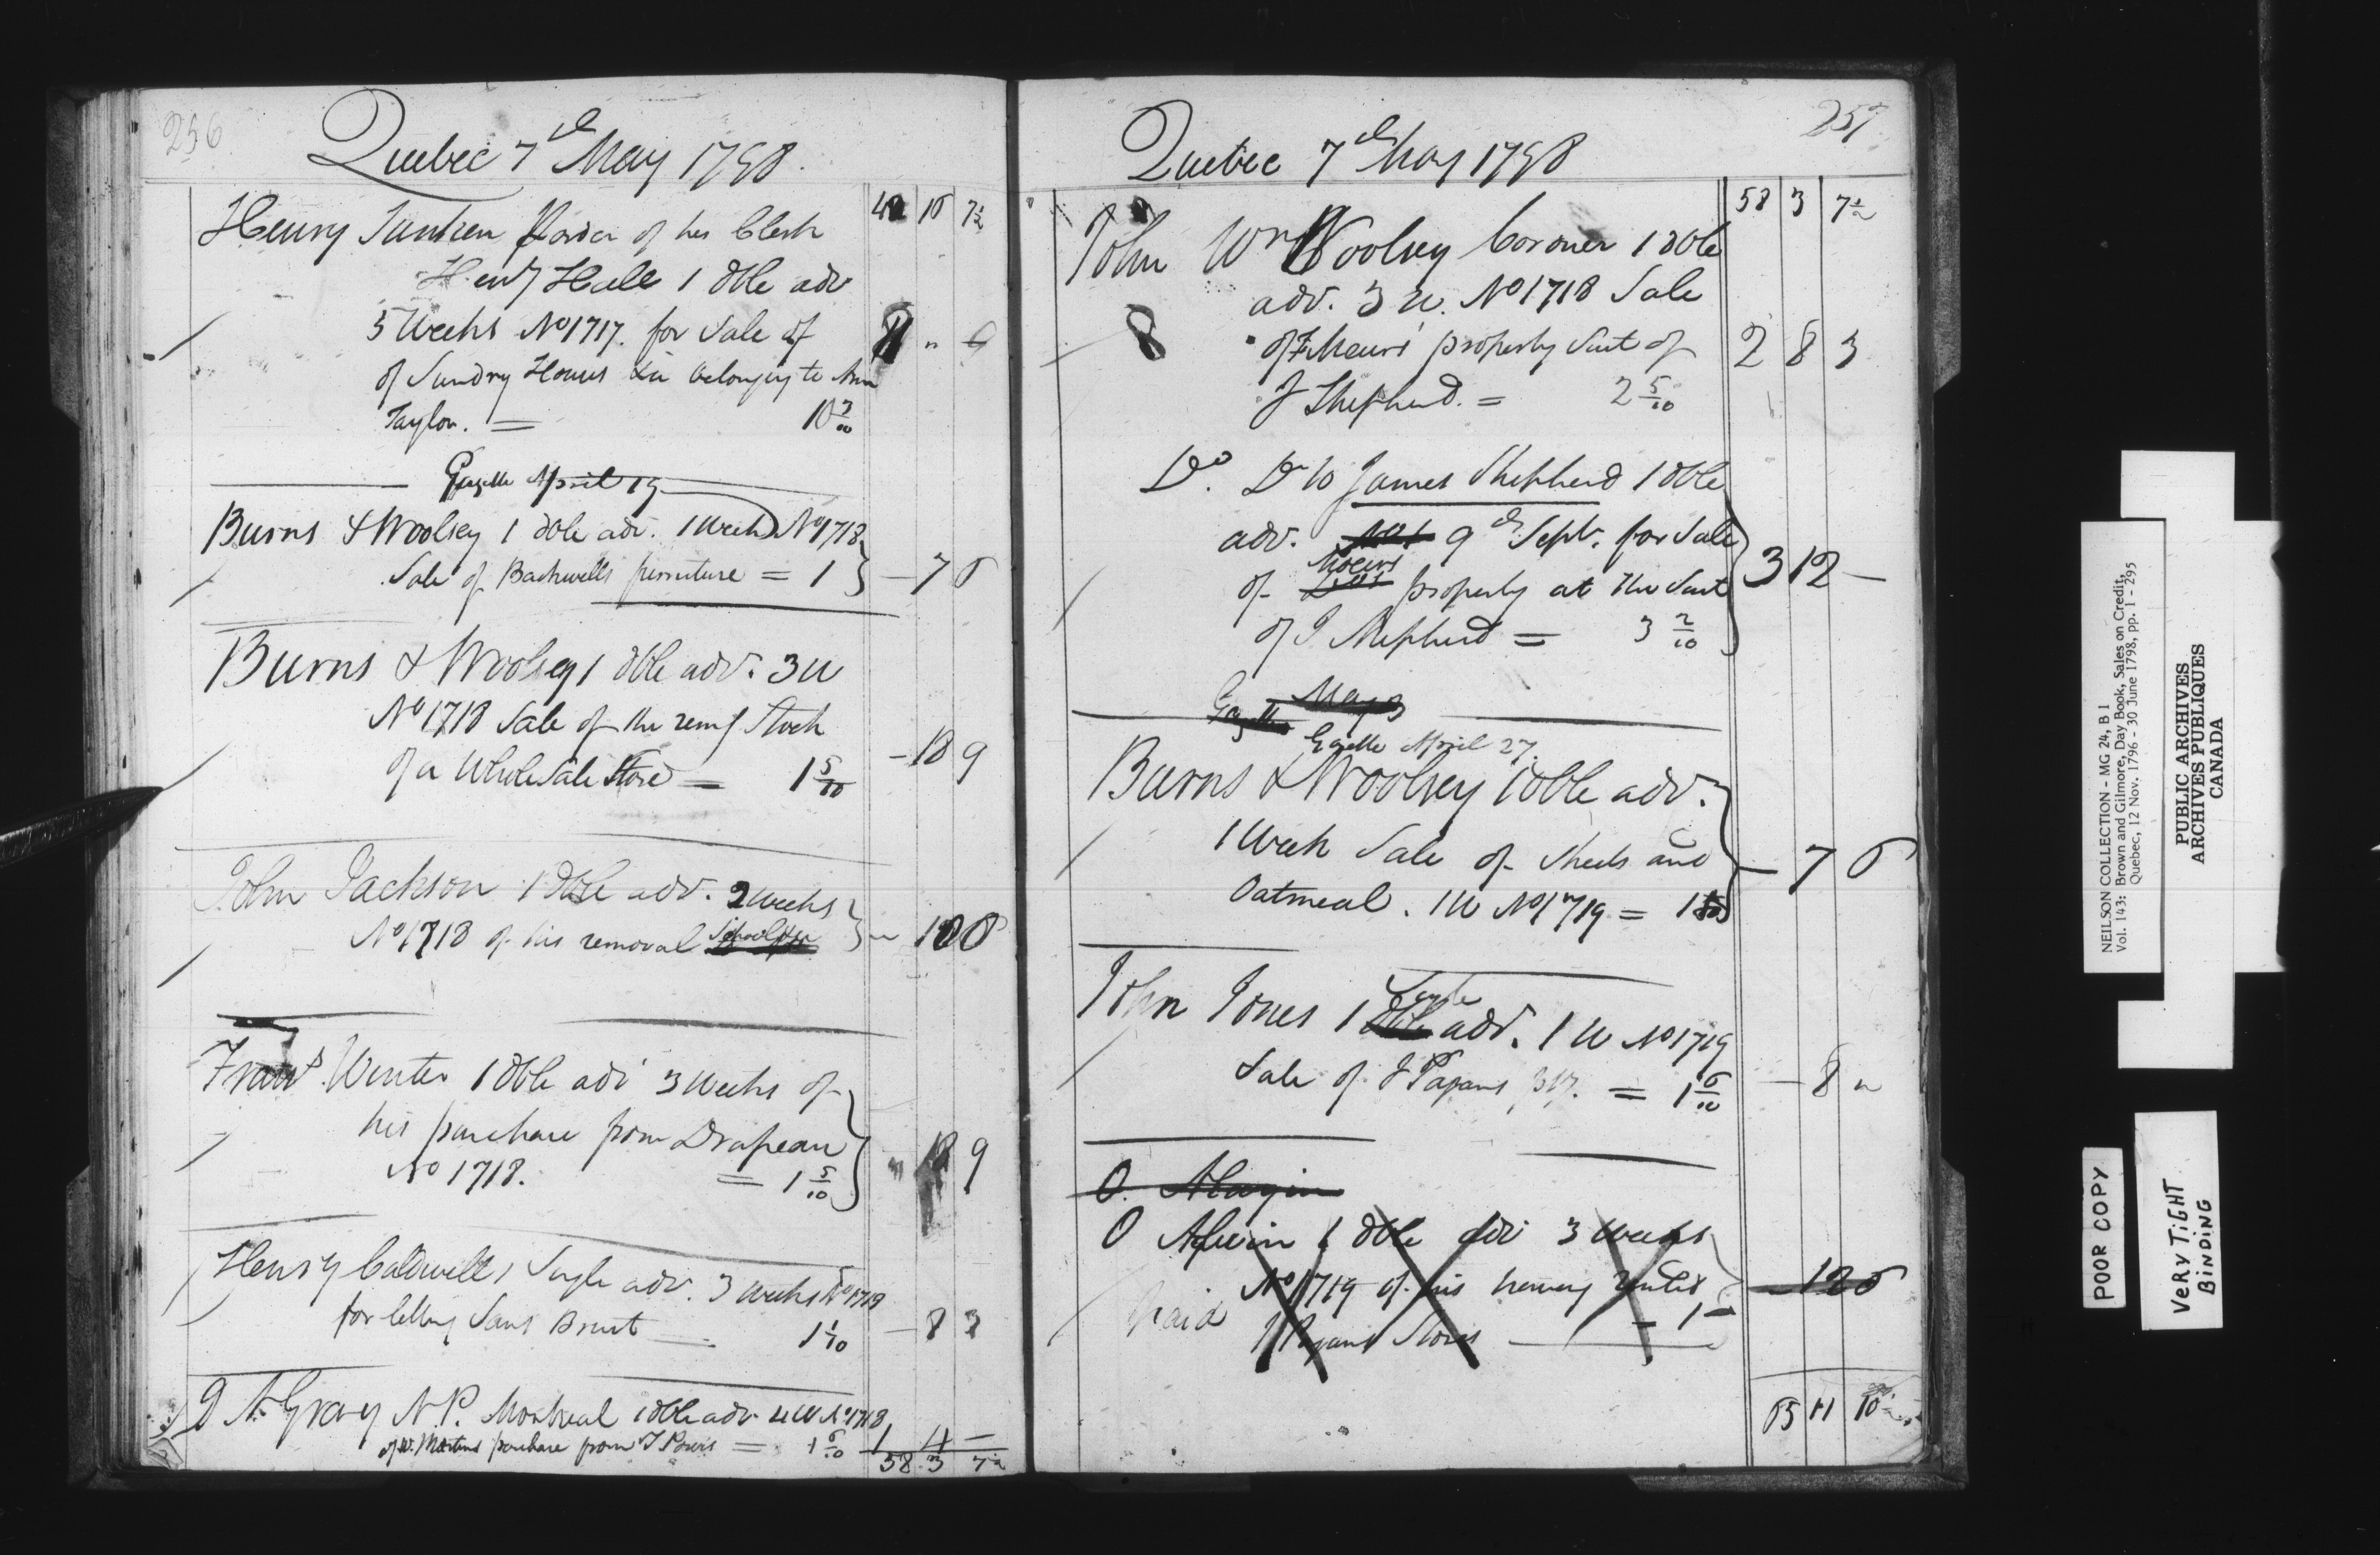 256
Quebec 7th May 1798.
42 16 7½
Henry Junken order of his Clerk
Heny Hale 1 dble adv
5 Weeks No 1717. for Sale of
of Sundry Houses &c belonging to Ann
Taylor. =
Gazette April 19
Burns & Woolsey 1 dble adv. 1 Week No 1718
Sale of Backwells furniture = 1 — 7 6
Burns & Woolsey 1 dble adv. 3 W
No 1718 Sale of the remg Stock
of a Wholesale Store = 1 5/10 — 18 9
John Jackson 1 Dble adv. 2 weeks
No 1718 of his removal 12 6
Frans Winter 1 dble adv 3 Weeks of
his purchase from Drapeau
No 1718. = 1 5/10 " 18 9
Henry Caldwell 1 Single adv. 3 weeks No 1718
for letting Sans Bruit 1 1/10 — 8 3
A Gray N.P. Montreal 1 dble adv 4 W No 1718
of W. Martins purchase from T Powis = 1 6/10 1 4 —
58 3 7½
257
Quebec 7th May 1798
58 3 7½
John Wm Woolsey Coroner 1 dble
adv. 3 W. No 1718 Sale
of F Meurs property Suit of 2 8 3
J Shepherd. = 2 5/10
Do. Dr to James Shepherd 1 dble
adv. No 1 9th Sept. for Sale
of Moeurs property at the Suit 3 12 —
of J Shepherd = 3 2/10
Gazette May 3
Gazette April 27.
Burns & Woolsey 1 dble adv.
1 Week Sale of Sheets and — 7 6
Oatmeal. 1 W No 1719 = 1
John Jones 1 Single dble adv. 1 W No 1719
Sale of J Pagans = 1 6/10 — 8 "
O. Alwyin
O Aylwin 1 dble adv 3 Weeks
No 1719 of his having rented — 12 6
paid
J Pagans Stores — 1 —
65 11 10½
NEILSON COLLECTION - MG 24, B 1
Vol. 143: Brown and Gilmore, Day Book, Sales on Credit,
Quebec, 12 Nov. 1796 - 30 June 1798, pp. 1 - 295
PUBLIC ARCHIVES
ARCHIVES PUBLIQUES
CANADA
POOR COPY
VERY TIGHT
BINDING